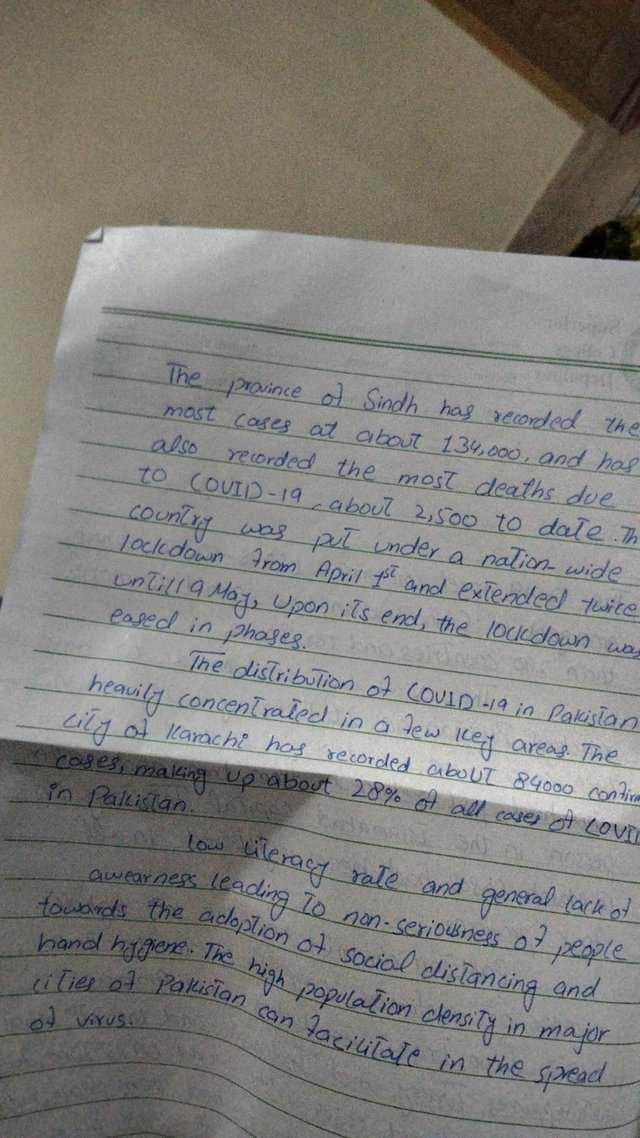 The province of Sindh has recorded the
most cases at about 134,000, and has
also recorded the most deaths due
to COVID-19, about 2,500 to date. Th
country was put under a nation-wide
lockdown from April 1st and extended twice
untill 9 May, Upon its end, the lockdown was
eased in phases.
The distribution of COVID-19 in Pakistan
heavily concentrated in a few key areas. The
city of Karachi has recorded about 84000 confirm
cases, making up about 28% of all cases of COVID
in Pakistan.
low literacy rate and general lack of
awearness leading to non-seriousness of people
towards the adoption of social distancing and
hand hygiene. The high population density in major
cities of Pakistan can facilitate in the spread
of virus.